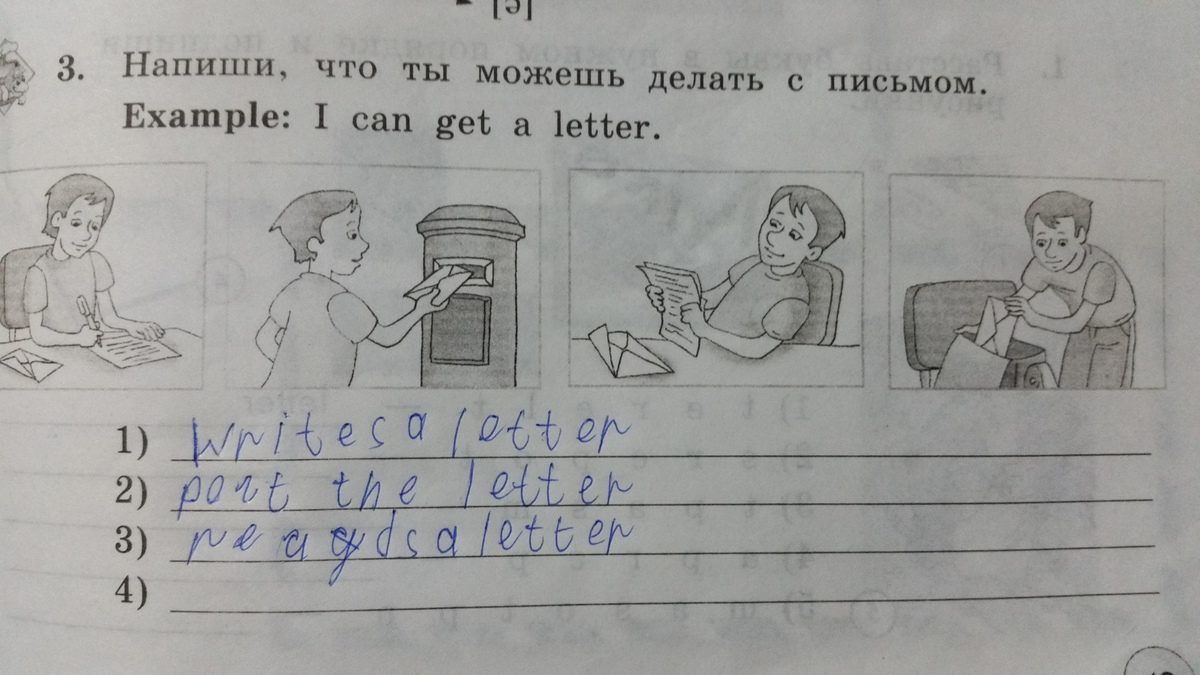 3. Напиши, что ты можешь делать с письмом.
Example: I can get a letter.
1) writes a letter
2) post the letter
3) reads a letter
4)